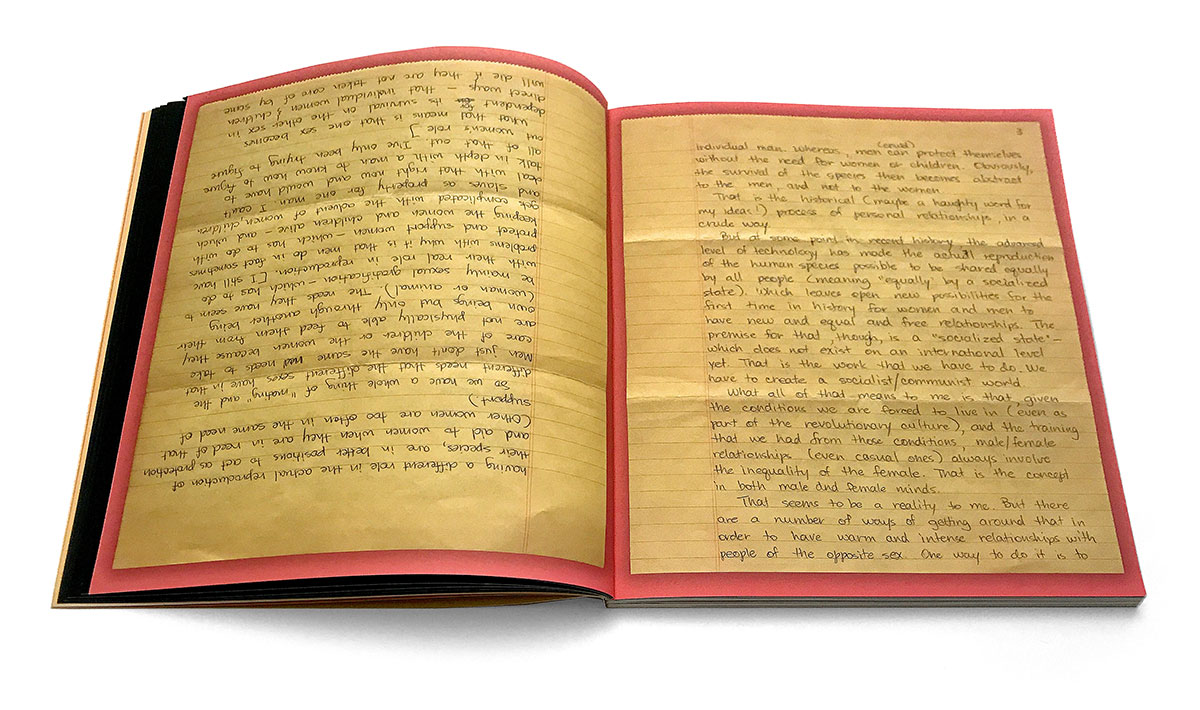 having a different role in the actual reproduction of
their species, are in better positions to act as protection
and aid to women when they are in need of that
(Other women are too often in the same need of
support)
So we have a whole thing of "mating" and the
different needs that the different sexes have in that
Men just don't have the same needs to take
care of the children or the women because they
are not physically able to feed them from their
own beings but only through another being
(woman or animal). The needs they have seem to
be mainly sexual gratification – which – has to do
with their real role in reproduction. [I still have
problems with why it is that men do in fact sometimes
protect and support women – which – has to do with
keeping the women and children alive – and which
gets complicated with the advent of women, children
and slaves as property for one man I can't
deal with that right now and would have to
talk in depth with a man to know how to figure
all of that out I've only been trying to figure
out women's role ]
what that means is that one sex becomes
dependent for its survival on the other sex in
direct ways – that individual women & children
will die if they are not taken care of by some
3
individual man. whereas, men can protect themselves
without the need for women or children. Obviously,
the survival of the species then becomes abstract
to the men, and not to the women.
That is the historical (maybe a haughty word for
my ideas!) process of personal relationships, in a
crude way.
But at some point in recent history the advanced
level of technology has made the actual reproduction
of the human species possible to be shared equally
by all people (meaning "equally by a socialized
state). Which leaves open new possibilities for the
first time in history for women and men to
have new and equal and free relationships. The
premise for that, though, is a "socialized state" –
which does not exist on an international level
yet. That is the work that we have to do. We
have to create a socialist/communist world.
What all of that means to me is that, given
the conditions we are forced to live in (even as
part of the revolutionary culture), and the training
that we had from those conditions, male/female
relationships (even casual ones) always involve
the inequality of the female. That is the concept
in both male and female minds.
That seems to be a reality to me. But there
are a number of ways of getting around that in
order to have warm and intense relationships with
people of the opposite sex. One way to do it is to